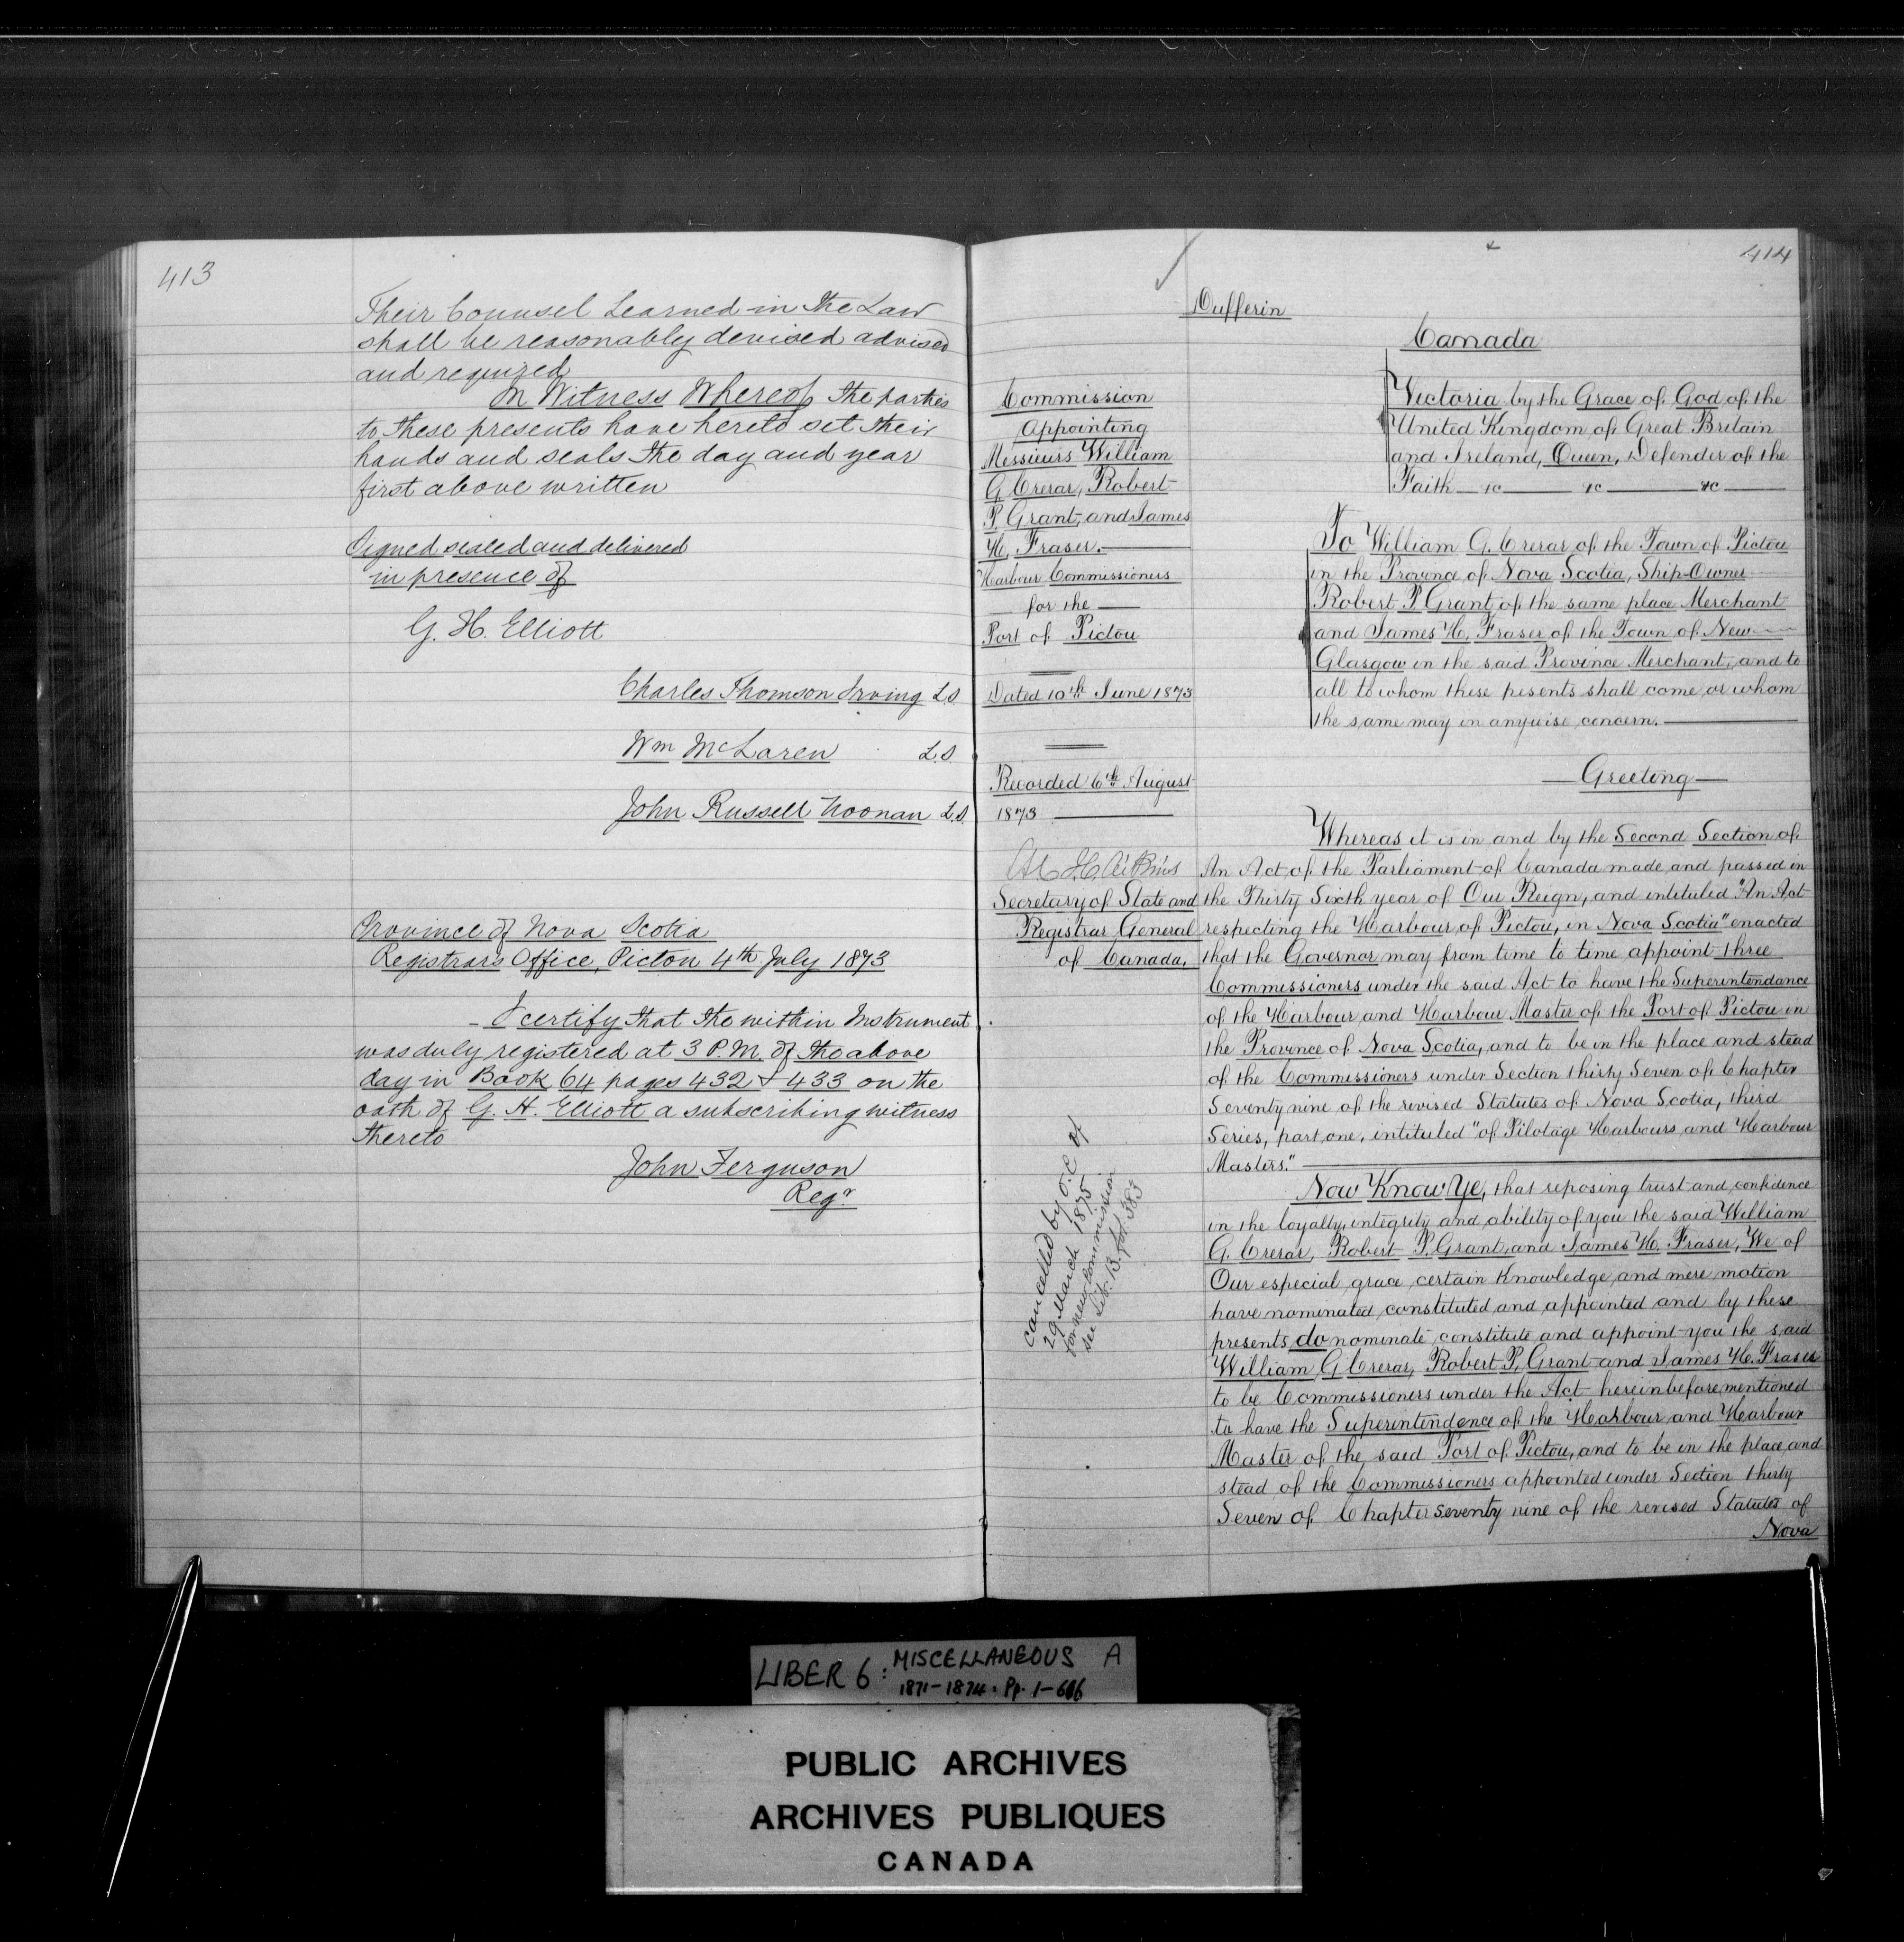 413
Their Counsel Learned in the Law
shall be reasonably devised advised
and required
In Witness Whereof the parties
to these presents have hereto set their
hands and seals the day and year
first above written
Signed sealed and delivered
in presence of
G. H. Elliott
Charles Thomson Irving L.S.
Wm McLaren L.S.
John Russell Noonan L.S.
Province of Nova Scotia
Registrars Office, Picton 4th July 1873
I certify that the within Instrument
was duly registered at 3 P.M. of the above
day in Book 64 pages 432 & 433 on the
oath of G. H. Elliott a subscribing witness
thereto
John Ferguson
Regr
414
Dufferin
Canada
Commission
Appointing
Messieurs William
G. Crerar, Robert
P. Grant, and James
H. Fraser.
Harbour Commissioners
for the
Port of Pictou
Dated 10th June 1873
Recorded 6th August
1873
Secretary of State and
Registrar General
of Canada,
cancelled by O.C. of
29 March 1875
for new commission
see Lib. 13. fol. 383
Victoria by the Grace of God of the
United Kingdom of Great Britain
and Ireland, Queen, Defender of the
Faith &c &c &c
To William G. Crerar of the Town of Pictou
in the Province of Nova Scotia, Ship-Owner
Robert P. Grant of the same place Merchant
and James H. Fraser of the Town of New
Glasgow in the said Province Merchant, and to
all to whom these pesents shall come or whom
the same may in anywise concern.
Greeting
Whereas it is in and by the Second Section of
An Act of the Parliament of Canada made and passed in
the Thirty Sixth year of Our Reign, and intituled "An Act
respecting the Harbour of Pictou, in Nova Scotia" enacted
that the Governor may from time to time appoint three
Commissioners under the said Act to have the Superintendance
of the Harbour and Harbour Master of the Port of Pictou in
the Province of Nova Scotia, and to be in the place and stead
of the Commissioners under Section thirty Seven of Chapter
Seventy nine of the revised Statutes of Nova Scotia, third
Series, part one, intituled "of Pilotage Harbours and Harbour
Masters."
Now Know Ye, that reposing trust and confidence
in the loyalty, integrity and ability of you the said William
G. Crerar, Robert P. Grant, and James H. Fraser, We of
Our especial grace certain Knowledge, and mere motion
have nominated constituted and appointed and by these
presents do nominate constitute and appoint you the said
William G Crerar, Robert P. Grant and James H. Fraser
to be Commissioners under the Act hereinbefore mentioned
to have the Superintendence of the Harbour and Harbour
Master of the said Port of Pictou, and to be in the place and
stead of the Commissioners appointed under Section thirty
Seven of Chapter seventy nine of the revised Statutes of
Nova
LIBER 6: MISCELLANEOUS A
1871-1874: Pp. 1-606
PUBLIC ARCHIVES
ARCHIVES PUBLIQUES
CANADA